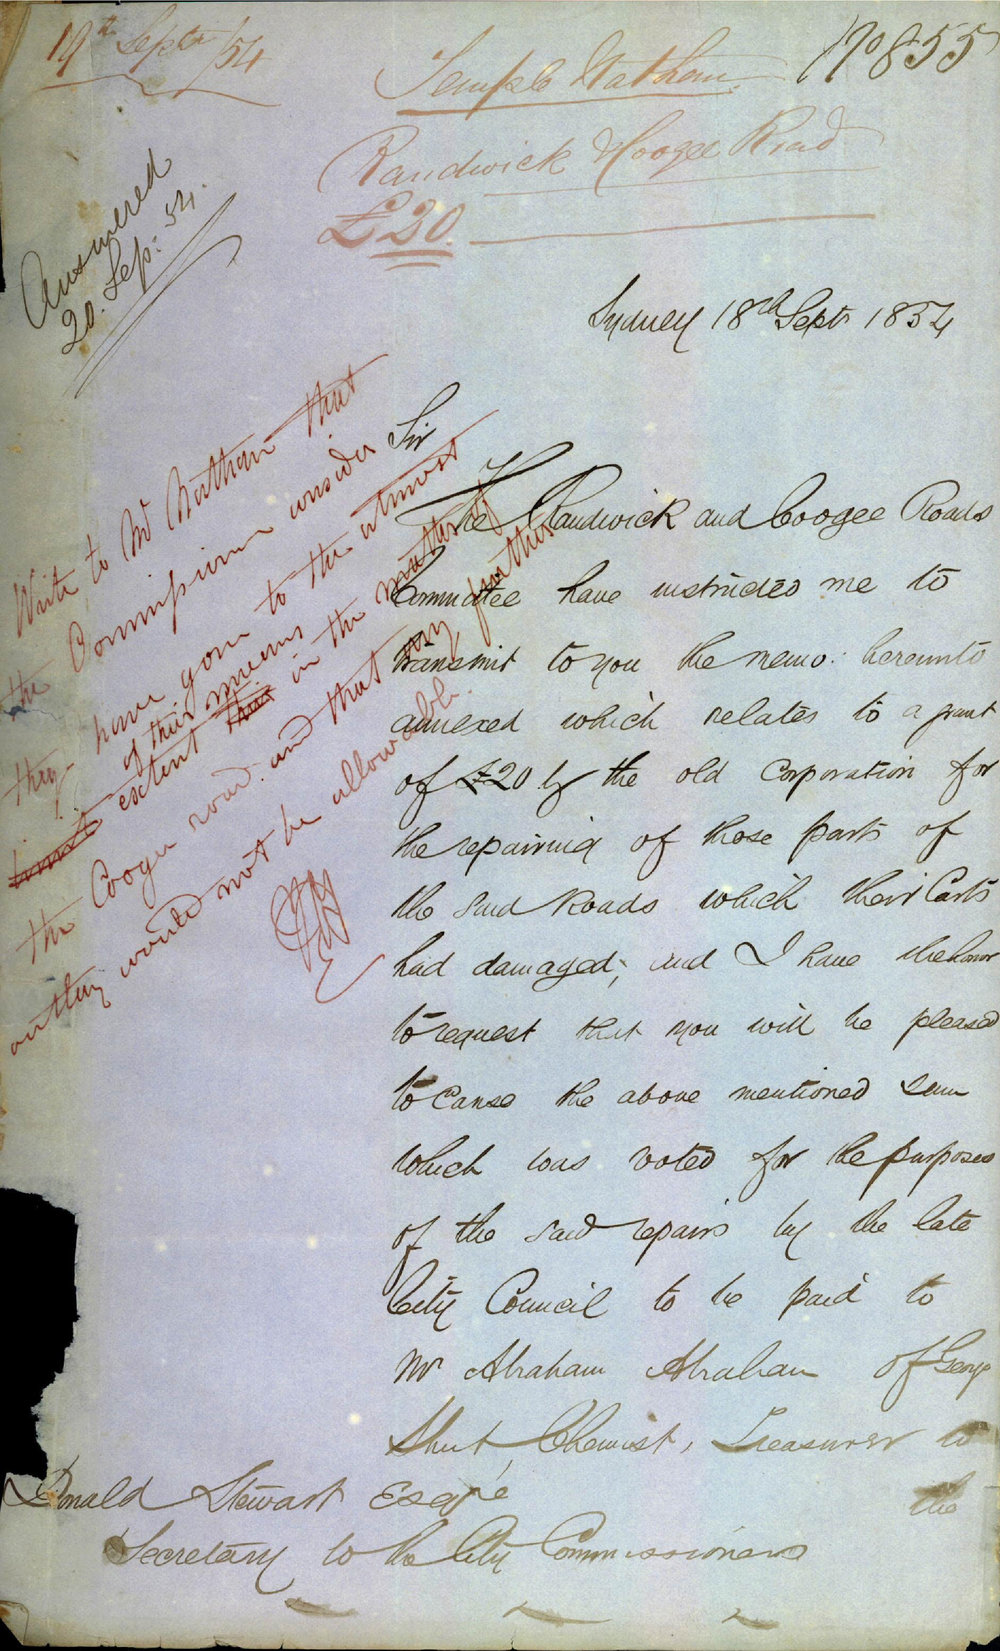 19th Septr /54
No 855
Temple Nathan
Randwick & Coogee Road
£20.
Answered
20. Sep: 54.
Sydney 18th Sept 1854
Sir
The Randwick and Coogee Roads
Committee have instructed me to
transmit to you the memo: hereunto
annexed which relates to a grant
of £20 by the old Corporation for
the repairing of those parts of
the said Roads which their Carts
had damaged; and I have the honor
to request that you will be pleased
to cause the above mentioned sum
which was voted for the purposes
of the said repairs by the late
City Council to be paid to
Mr Abraham Abraham of George
Street, Chemist, Treasurer to
the
Donald Stewart Esqre
Secretary to the City Commissioners
Write to Mr Nathan that
the Commissioners consider
they have gone to the utmost
limit extent this of their means in the matter of
the Coogee road and that any further
outlay would not be allowable.